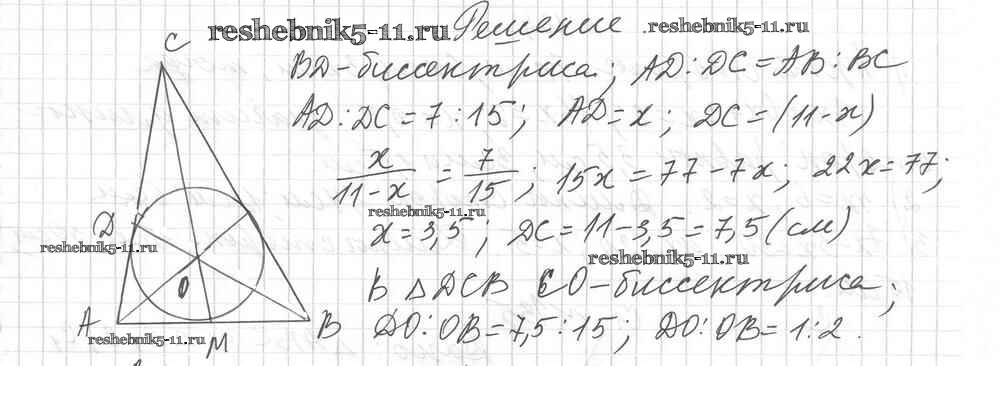 reshebnik5-11.ru Решение .reshebnik5-11.ru
C
BD - биссектриса; AD : DC = AB : BC
AD : DC = 7 : 15; AD = x; DC = (11 - x)
x/(11-x) = 7/15; 15x = 77 - 7x; 22x = 77;
reshebnik5-11.ru
D
x = 3,5; DC = 11 - 3,5 = 7,5 (см)
reshebnik5-11.ru
reshebnik5-11.ru
O
В △DCB CO - биссектриса;
A
B
DO : OB = 7,5 : 15; DO : OB = 1 : 2.
reshebnik5-11.ru
M